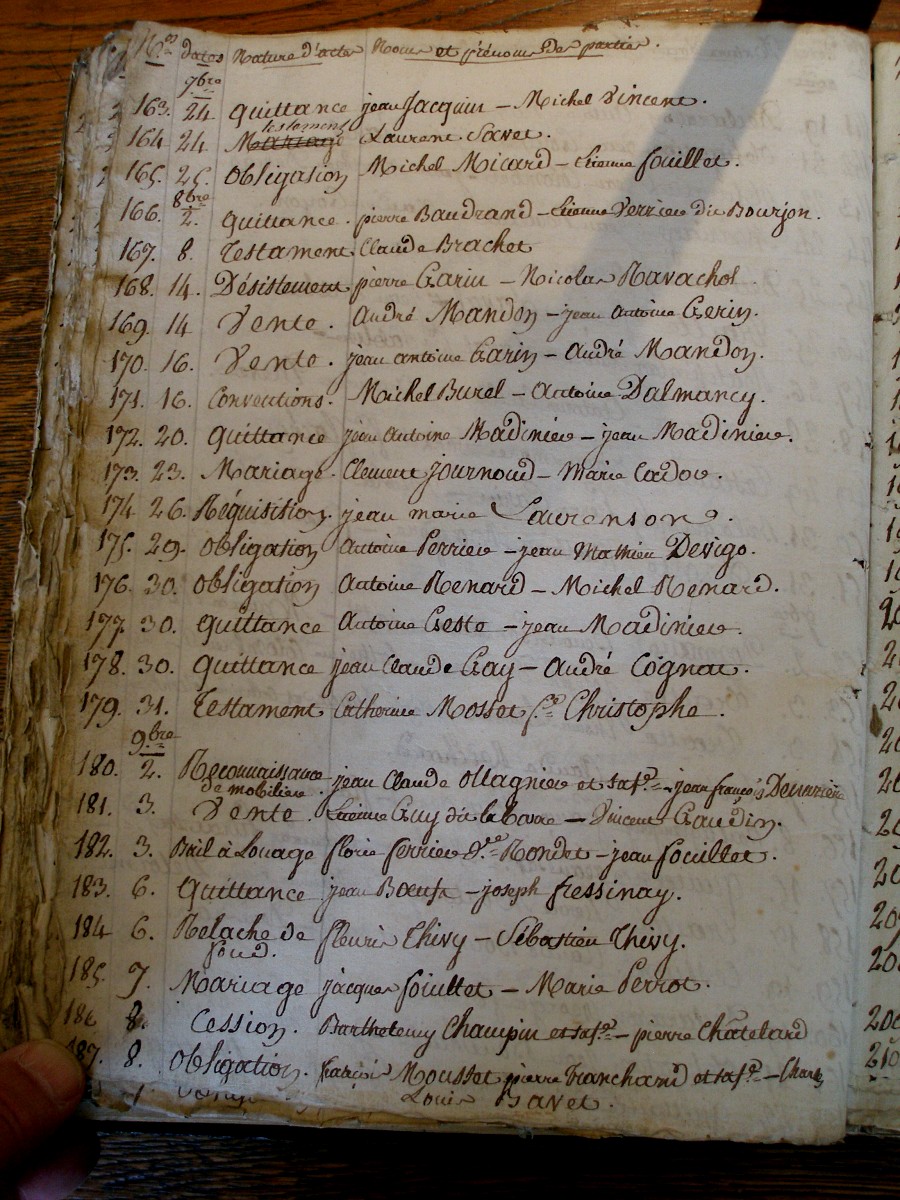 N.os dates Nature d'actes Noms et prénoms des parties.
7bre
163. 24 Quittance jean Jacquin – Michel Vincent.
testament
164 24 Mariage Laurent Savet.
165. 25. Obligation Michel Micard – Etienne fouillet.
8bre
166. 2. Quittance. pierre Baudrand – Etienne Verrier dit Bourjon.
167. 8. Testament Claude Brachet
168. 14. Désistement pierre Garin – Nicolas Ravachol
169. 14 Vente. André Mandon – jean Antoine Gerin.
170. 16. Vente. jean antoine Garin – André Mandon.
171. 16. Conventions. Michel Burel – Antoine Dalmancy.
172. 20. Quittance jean Antoine Madinier – jean Madinier.
173. 23. Mariage. Clement journoud – Marie Cador.
174 26. Réquisition. jean marie Laurenson.
175. 29. Obligation Antoine Perrier – jean Mathieu Devigo.
176. 30. Obligation Antoine Renard – Michel Renard.
177. 30. Quittance Antoine Geste – jean Madinier.
178. 30. Quittance jean Claude Gay – André Cognat.
179. 31. Testament Catherine Mosset f.e Christophe.
9.bre
180. 2. Reconnaissance jean Claude Ollagnier et sa f.e – jean françois
de mobilier.
181. 3. Vente. Etienne Guy dit – Vincent Gaudin.
182. 3. Bail à Louage florie ferrier V.ve Rondet – jean fouillet.
183. 6. Quittance jean Bœuf – joseph fressinay.
184 6. Relache de fleurie Thivy – Sébastien Thivy.
fond.
185. 7. Mariage jacques fouillet – Marie Perrot.
186 8. Cession. Barthelemy Champin et sa f.e – pierre Châtelard
187. 8. Obligation. françois Mousset pierre franchand et sa f.e – Charles
Louis Bavet.